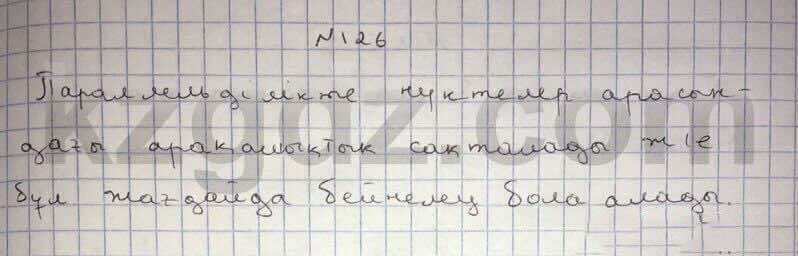 N126
Параллельділікте нүктелер арасын-
дағы арақашықтық сақталады және
бұл жағдайда бейнелеу бола алады.
kzgdz.com